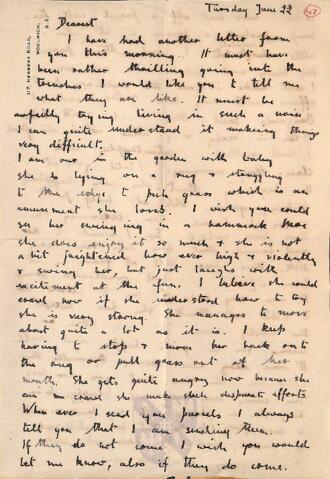 Tuesday June 22
47
117, HERBERT ROAD,
WOOLWICH,
S.E.
Dearest
I have had another letter from
you this morning. It must have
been rather thrilling going into the
trenches. I would like you to tell me
what they are like. It must be
awfully trying living in such a noise
I can quite understand it makeing things
very difficult.
I am out in the garden with baby
she is lying on a rug & struggling
to the edge to pick grass which is an
amusment she loves. I wish you could
see her swinging in a hammock
she does enjoy it so much & she is not
a bit frightened how ever high & violently
I swing her, but just laughs with
excitement at the fun. I believe she could
crawl now if she understood how to try
she is very strong. She manages to move
about quite a lot as it is. I keep
having to stop & move her back onto
the rug or pull grass out of her
mouth. She gets quite angry now because she
can not crawl she makes such disparate efforts
When ever I send you parcels I always
tell you that I am sending them.
If they do not come I wish you would
let me know, also if they do come.